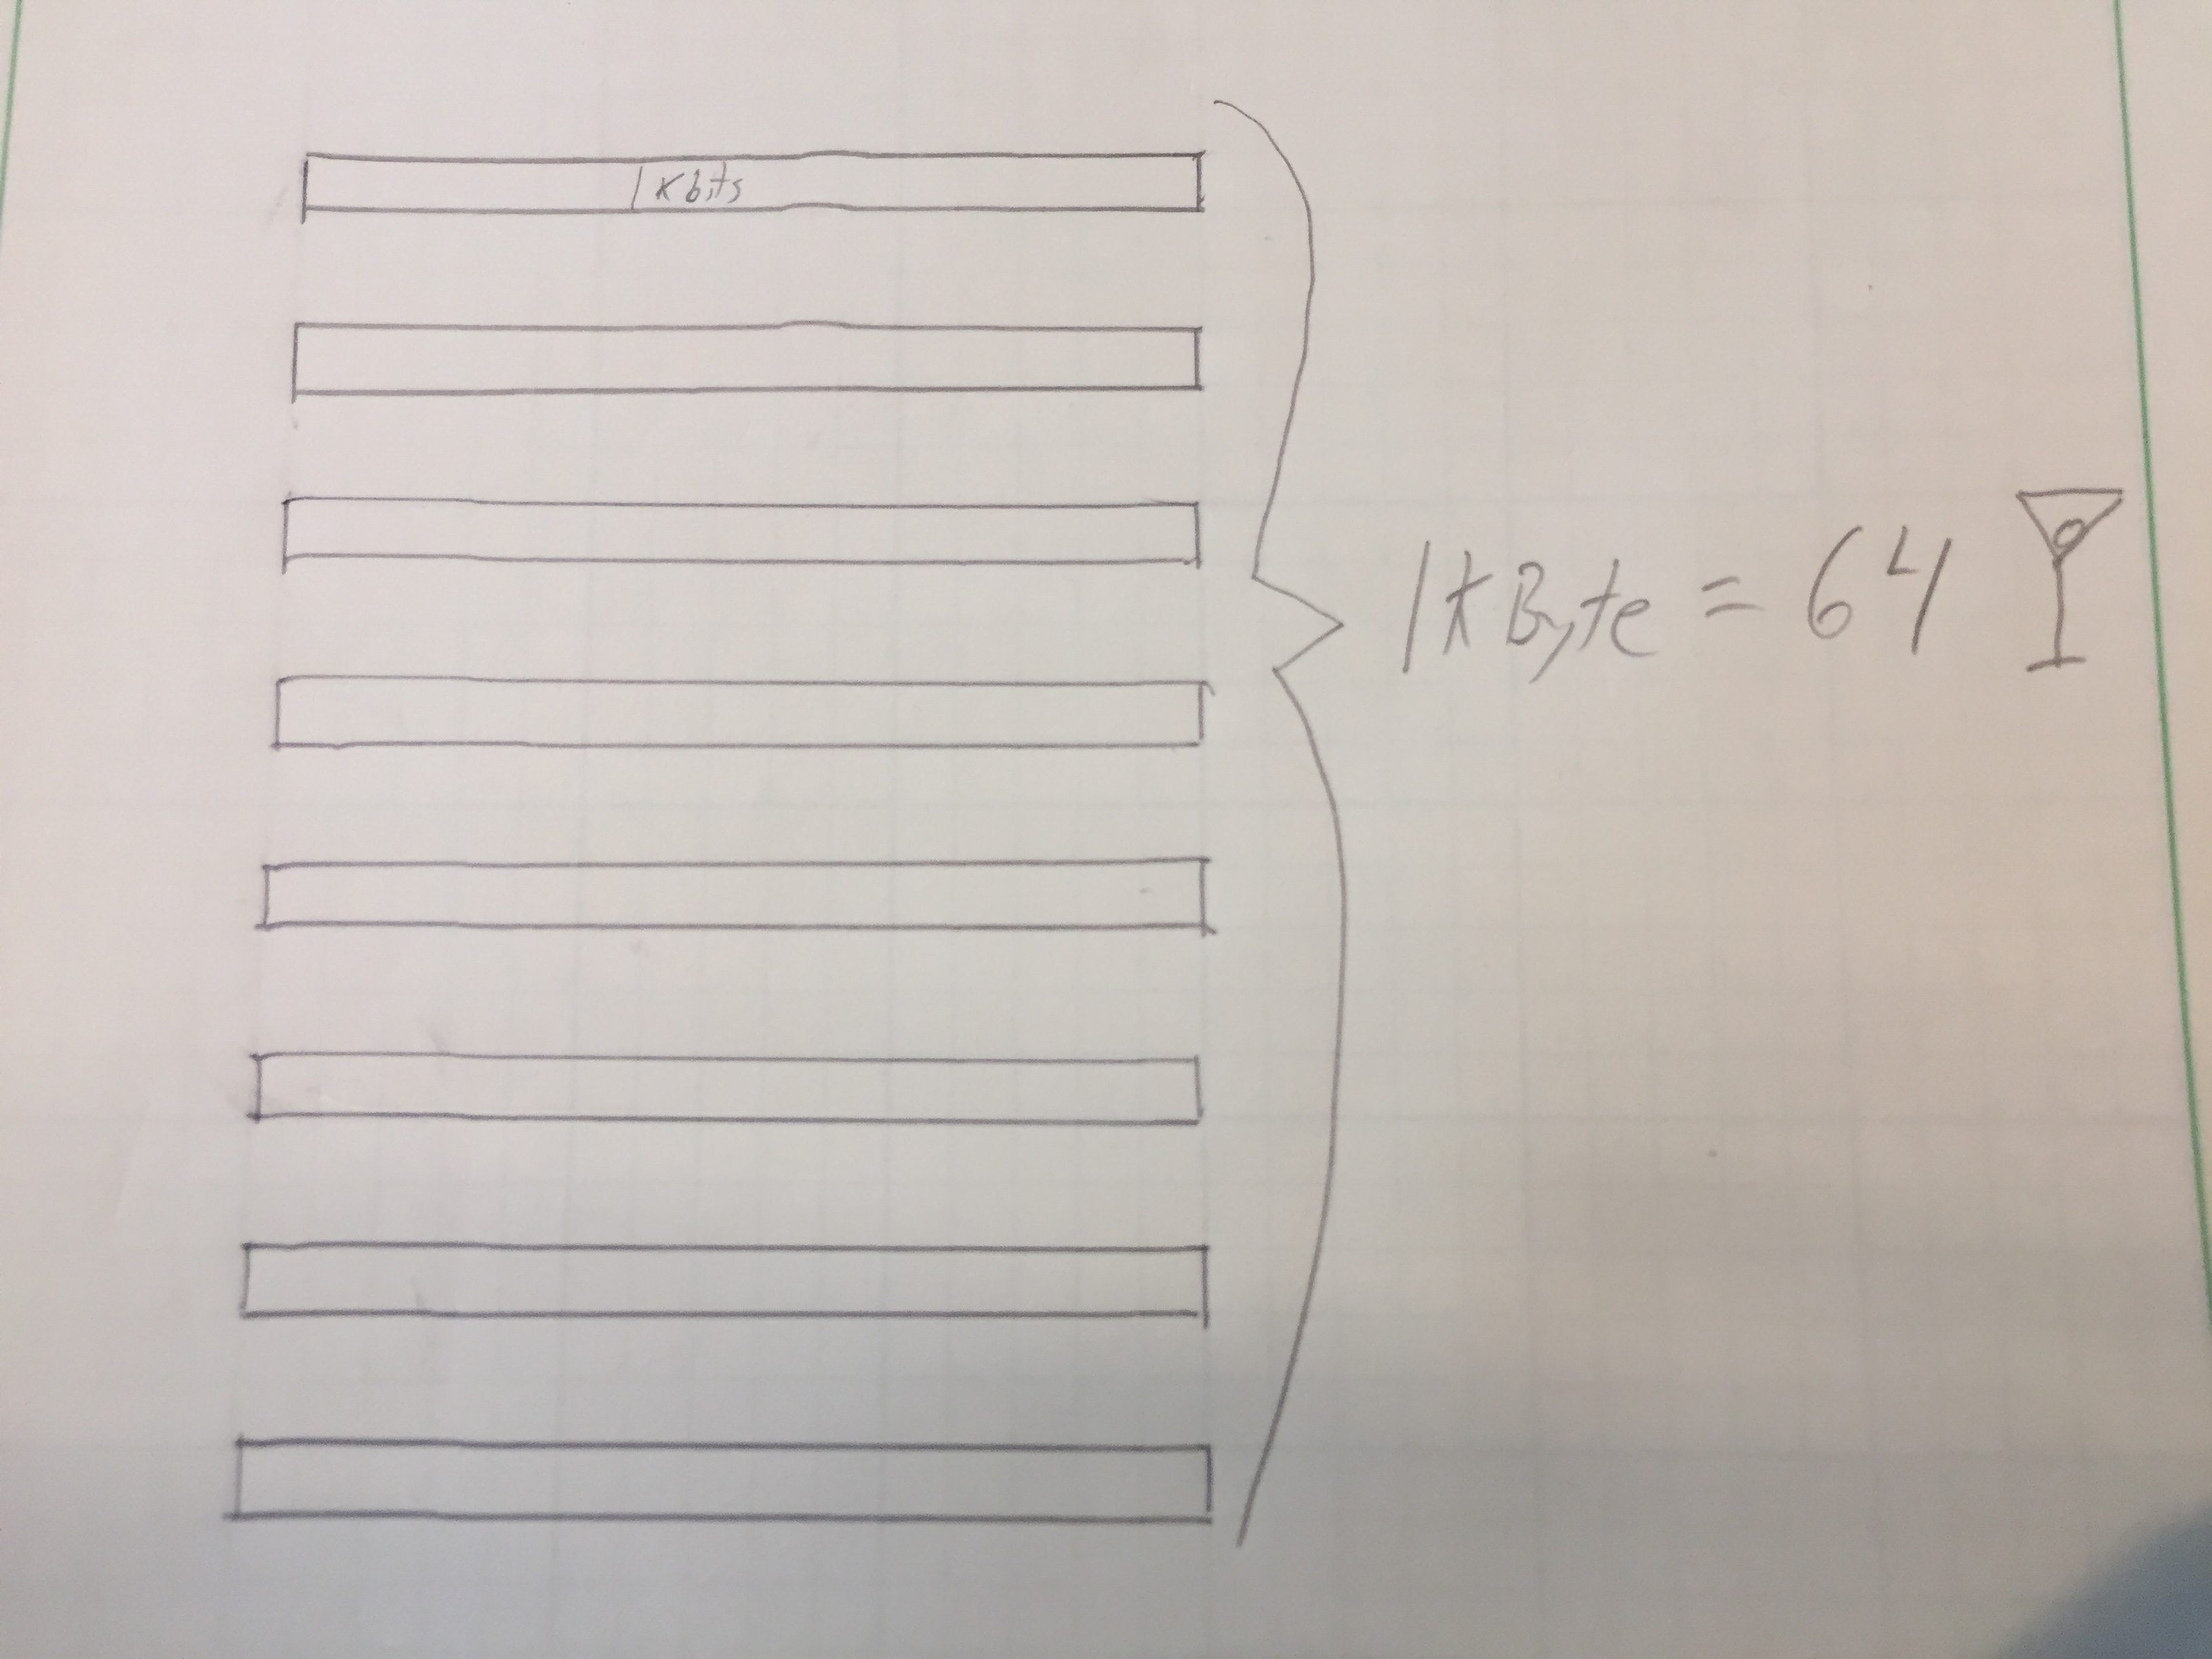 1 kbits
1 kByte = 64